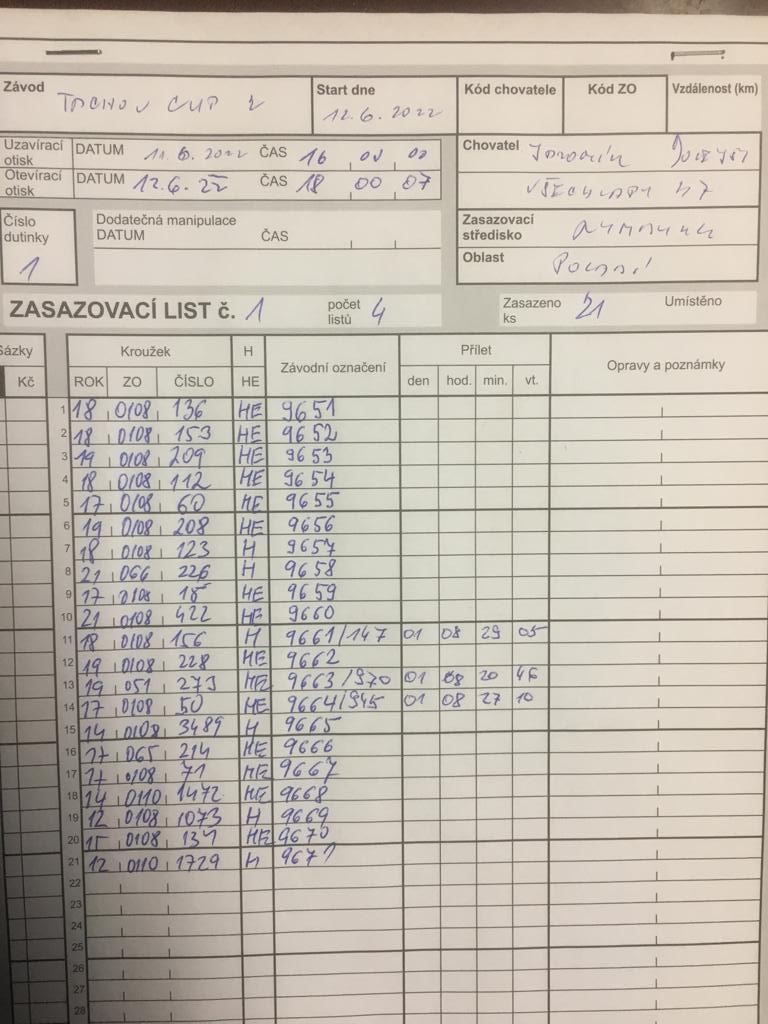 Závod TACHOV CUP 2 Start dne 12.6.2022 Kód chovatele Kód ZO Vzdálenost (km)
Uzavírací otisk DATUM 11.6.2022 ČAS 16 00 00
Otevírací otisk DATUM 12.6.22 ČAS 18 00 07
Chovatel
VŠECHLAPY 47
Číslo dutinky 1
Dodatečná manipulace
DATUM ČAS
Zasazovací středisko NYMBURK
Oblast
ZASAZOVACÍ LIST č. 1 počet listů 4 Zasazeno ks 21 Umístěno
Sázky Kroužek H Závodní označení Přílet Opravy a poznámky
Kč ROK ZO ČÍSLO HE den hod. min. vt.
1 18 0108 136 HE 9651
2 18 0108 153 HE 9652
3 19 0108 209 HE 9653
4 18 0108 112 HE 9654
5 17 0108 60 HE 9655
6 19 0108 208 HE 9656
7 18 0108 123 H 9657
8 21 066 226 H 9658
9 17 0108 18 HE 9659
10 21 0108 422 HE 9660
11 18 0108 156 H 9661/147 01 08 29 05
12 19 0108 228 HE 9662
13 19 051 273 HE 9663/970 01 08 20 46
14 17 0108 50 HE 9664/945 01 08 27 10
15 14 0108 3489 H 9665
16 17 065 214 HE 9666
17 17 0108 71 HE 9667
18 14 0110 1472 HE 9668
19 12 0108 1073 H 9669
20 15 0108 137 HE 9670
21 12 0110 1729 H 9671
22
23
24
25
26
27
28